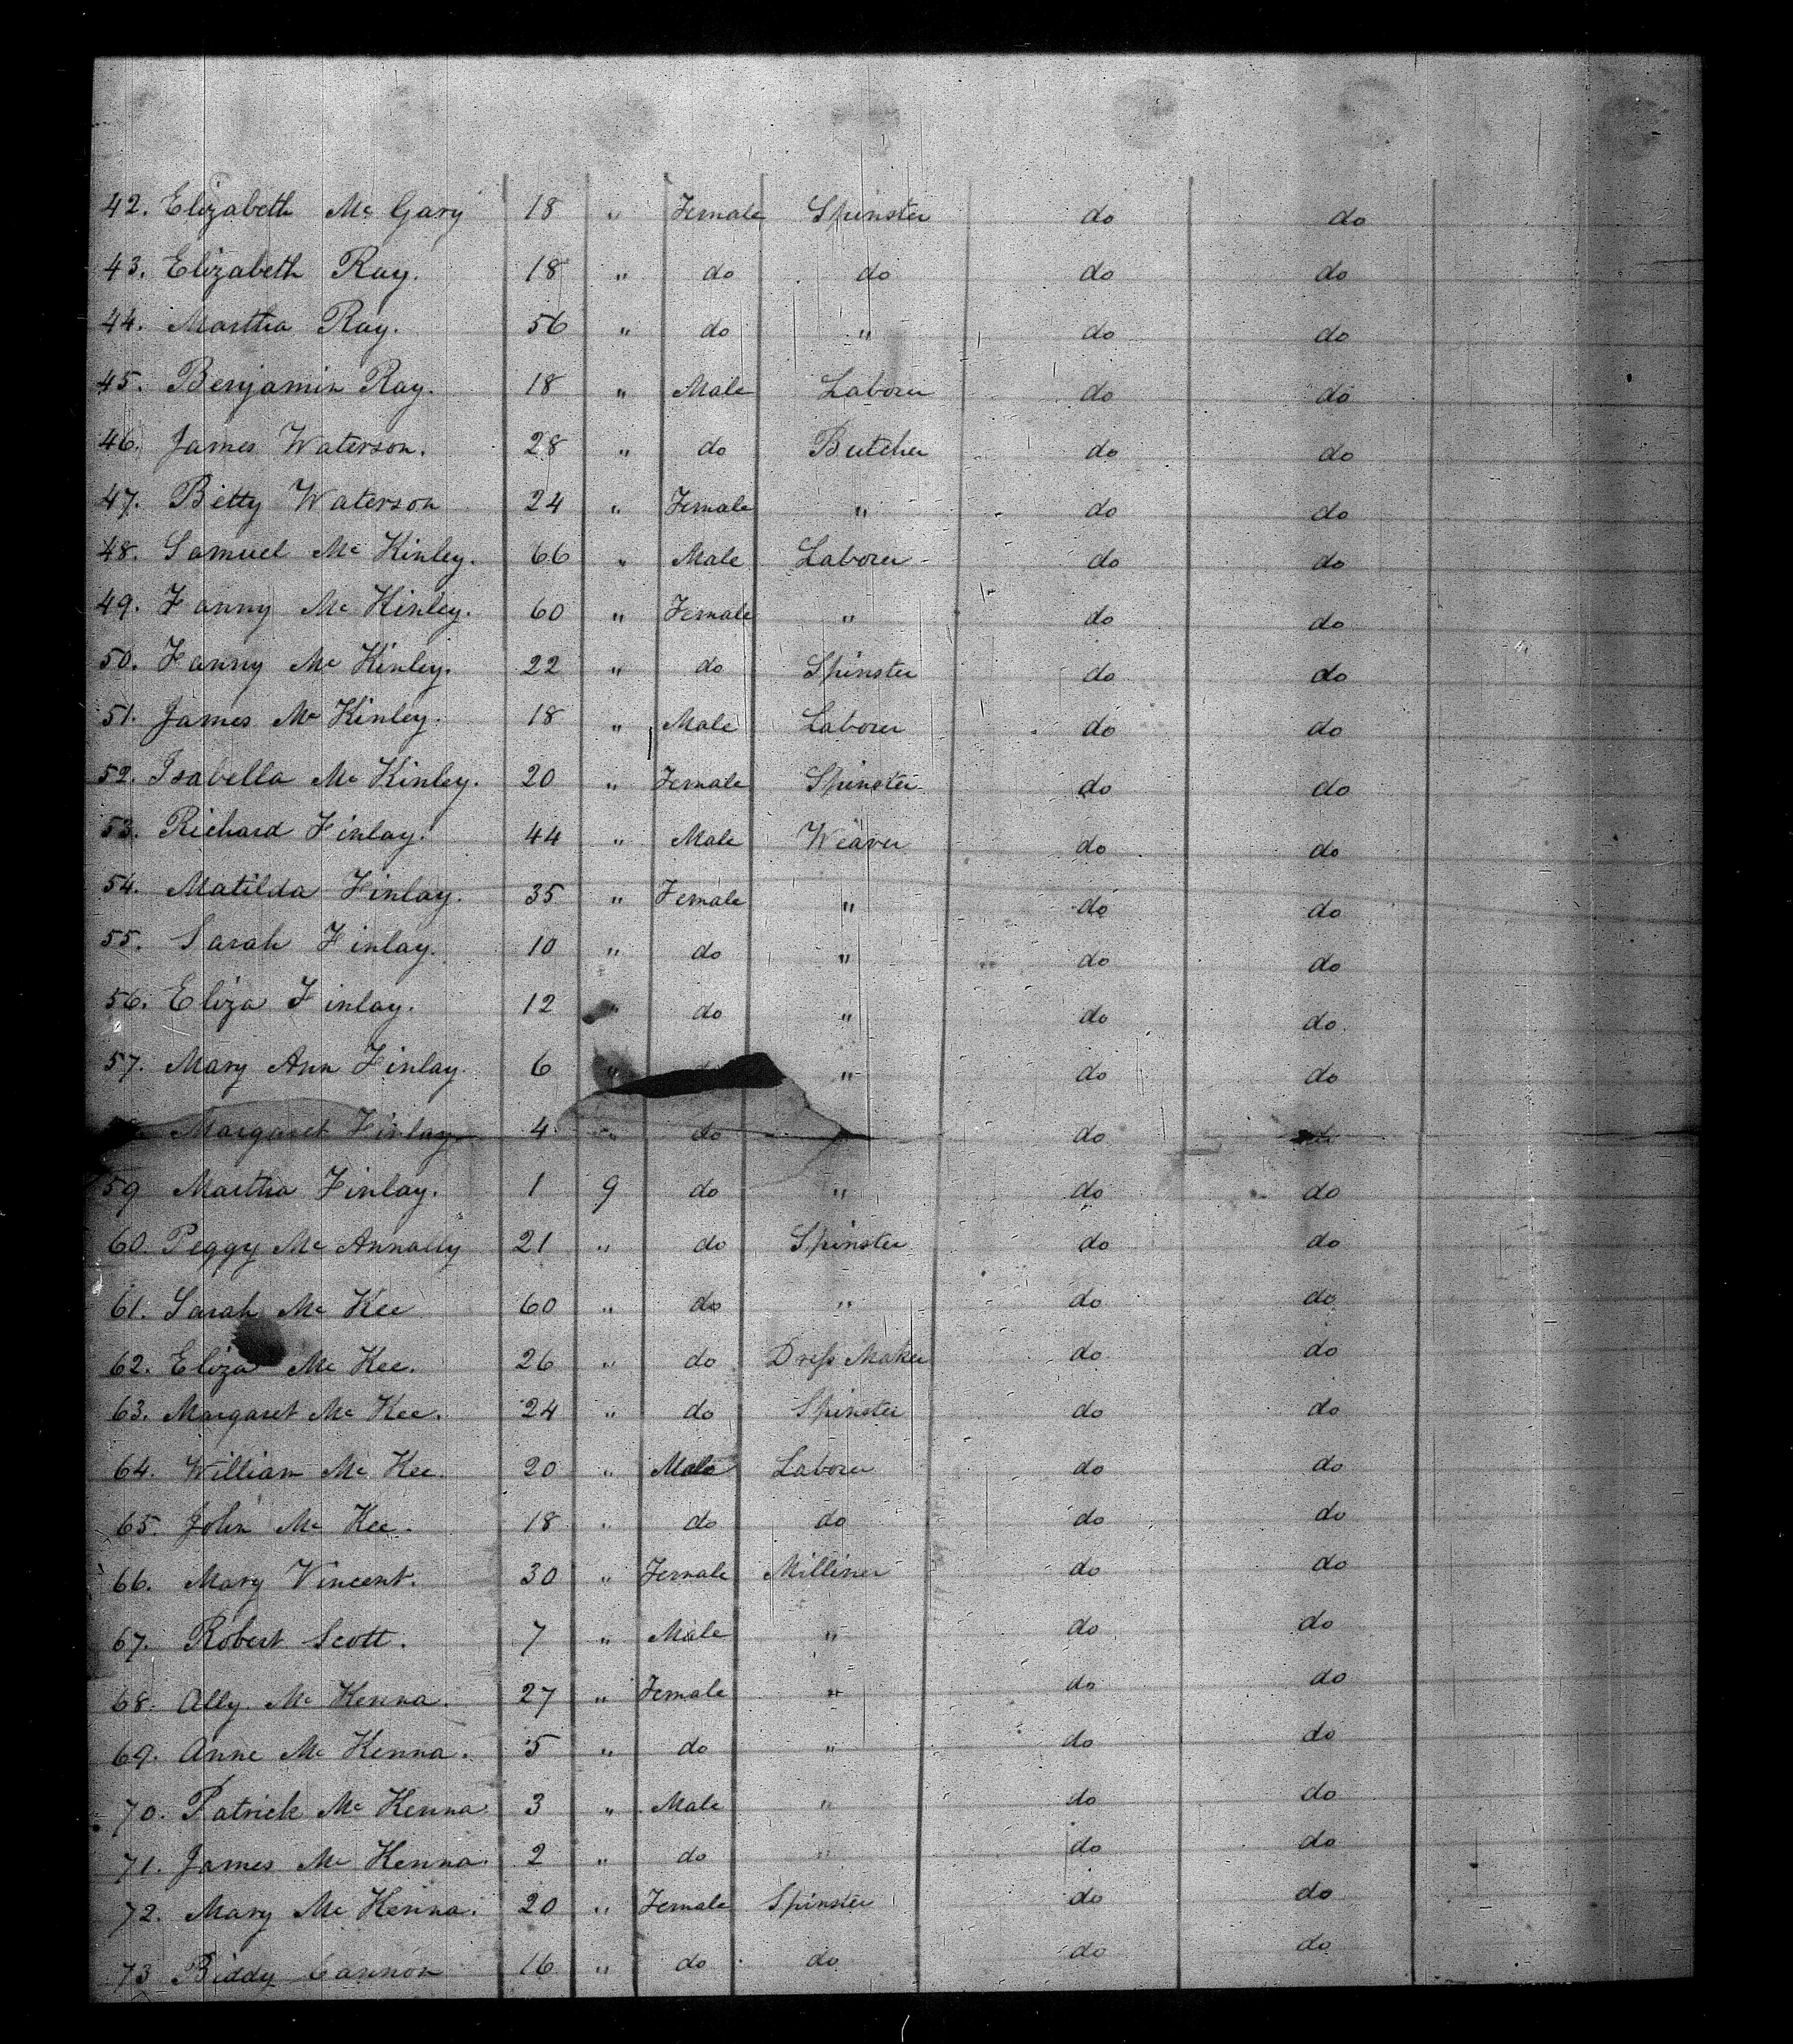 42. Elizabeth Mc Gary 18 " Female Spinster do do
43. Elizabeth Ray. 18 " do do do do
44. Martha Ray. 56 " do " do do
45. Benjamin Ray. 18 " Male Laborer do do
46. James Waterson. 28 " do Butcher do do
47. Betty Waterson 24 " Female " do do
48. Samuel Mc Kinley. 66 " Male Laborer do do
49. Fanny Mc Kinley. 60 " Female " do do
50. Fanny Mc Kinley. 22 " do Spinster do do
51. James Mc Kinley. 18 " Male Laborer do do
52. Isabella Mc Kinley. 20 " Female Spinster do do
53. Richard Finlay. 44 " Male Weaver do do
54. Matilda Finlay. 35 " Female " do do
55. Sarah Finlay. 10 " do " do do
56. Eliza Finlay. 12 " do " do do
57. Mary Ann Finlay. 6 " " do do
Margaret Finlay 4 " do do
59 Martha Finlay. 1 9 do " do do
60. Peggy Mc Annally 21 " do Spinster do do
61. Sarah Mc Kee 60 " do " do do
62. Eliza Mc Kee. 26 " do Dress Maker do do
63. Margaret Mc Kee. 24 " do Spinster do do
64. William Mc Kee. 20 " Male Laborer do do
65. John Mc Kee. 18 " do do do do
66. Mary Vincent. 30 " Female Milliner do do
67. Robert Scott. 7 " Male " do do
68. Ally Mc Kenna. 27 " Female " do do
69. Anne Mc Kenna. 5 " do " do do
70. Patrick Mc Kenna 3 " Male " do do
71. James Mc Kenna. 2 " do " do do
72. Mary Mc Kenna. 20 " Female Spinster do do
73 Biddy Cannon 16 " do do do do